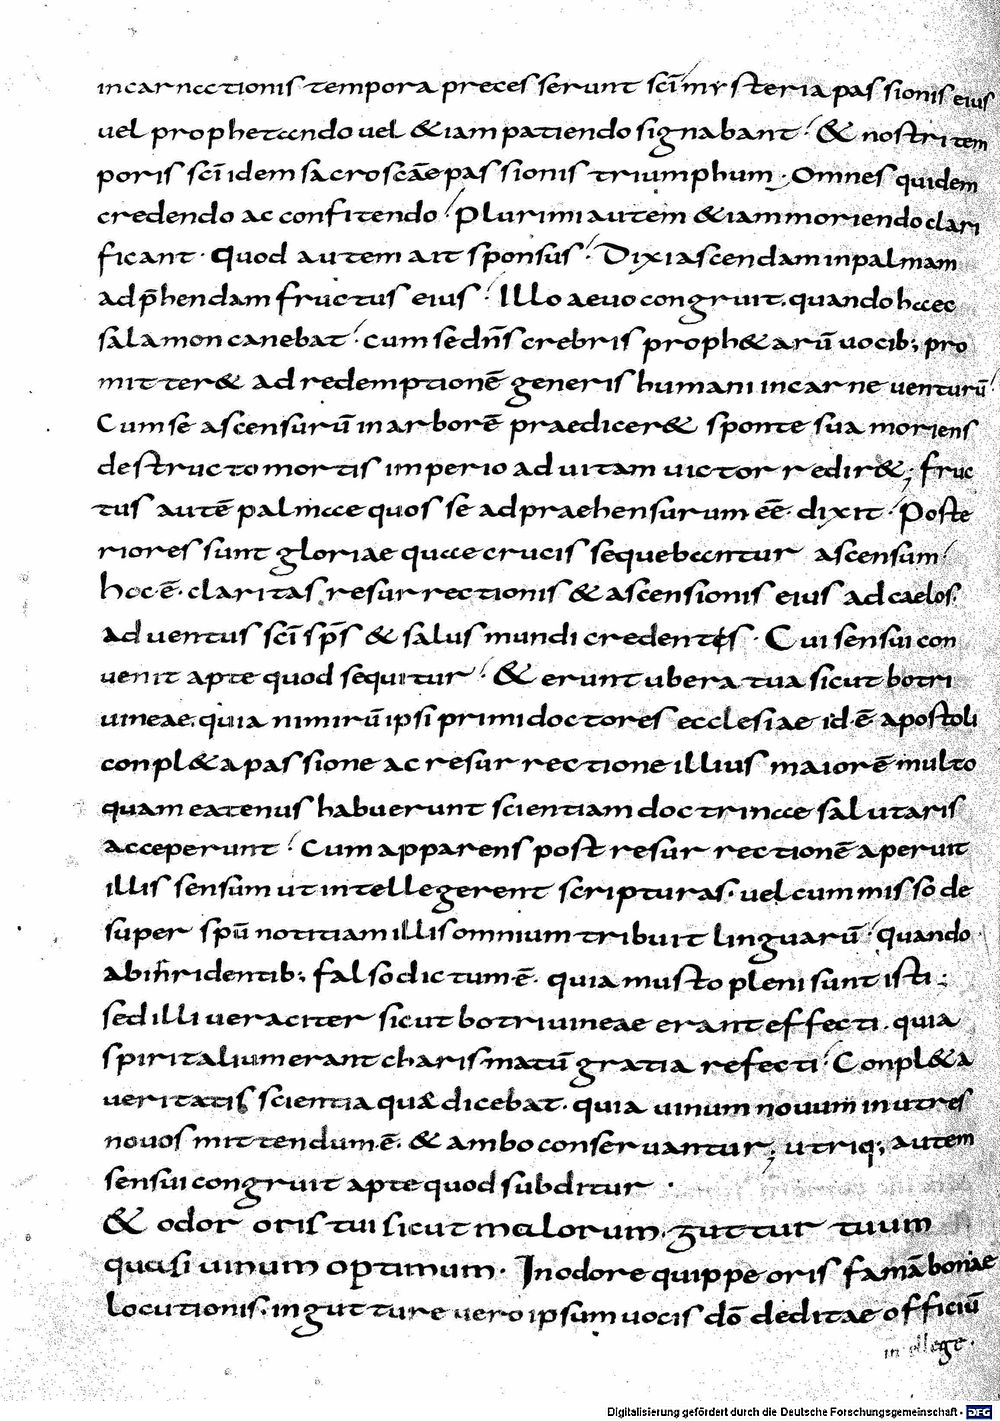 incarnationis tempora preces serunt scī mysteria passionis eius
uel prophetando uel &iam patiendo signabant · & nostri tem
poris scī idem sacroscāe passionis triumphum · Omnes quidem
credendo ac confitendo · Plurimi autem &iam moriendo clari
ficant · Quod autem ait sponsus · Dixi ascendam in palmam
ad p̄hendam fructus eius · Illo aeuo congruit, quando haec
salamon canebat · cum se dn̄s crebris proph&arū uocib; pro
mitter& ad redemptionē generis humani in carne uenturū ·
Cum se ascensurū in arborē praedicer& sponte sua moriens
destructo mortis imperio ad uitam uictor redir&; fruc
tus autē palmae quos se adpraehensurum eē dixit · Poste
riores sunt gloriae quae crucis sequebantur ascensum ·
hoc ē · claritas resurrectionis & ascensionis eius ad caelos ·
aduentus scī sp̄s & salus mundi credentis · Cui sensui con
uenit apte quod sequitur · & erunt ubera tua sicut botri
uineae, quia nimirū ipsi primi doctores ecclesiae id ē apostoli
conpl&a passione ac resurrectione illius maiorē multo
quam eatenus habuerunt scientiam doctrinae salutaris
acceperunt · Cum apparens post resurrectionē aperuit
illis sensum ut intellegerent scripturas · uel cum misso de
super spū notitiam illis omnium tribuit linguarū · quando
ab inridentib; falso dictum ē · quia musto pleni sunt isti ·
sed illi ueraciter sicut botri uineae erant effecti · quia
spiritalium erant charismatū gratia refecti · Conpl&a
ueritatis scientia quae dicebat · quia uinum nouum in utres
nouos mittendum ē · & ambo conseruantur; utriq; autem
sensui congruit apte quod subditur ·
& odor oris tui sicut malorum, guttur tuum
quasi uinum optimum · In odore quippe oris famā bonae
locutionis · in gutture uero ipsum uocis dō deditae officiū
intellege ·
Digitalisierung gefördert durch die Deutsche Forschungsgemeinschaft - DFG